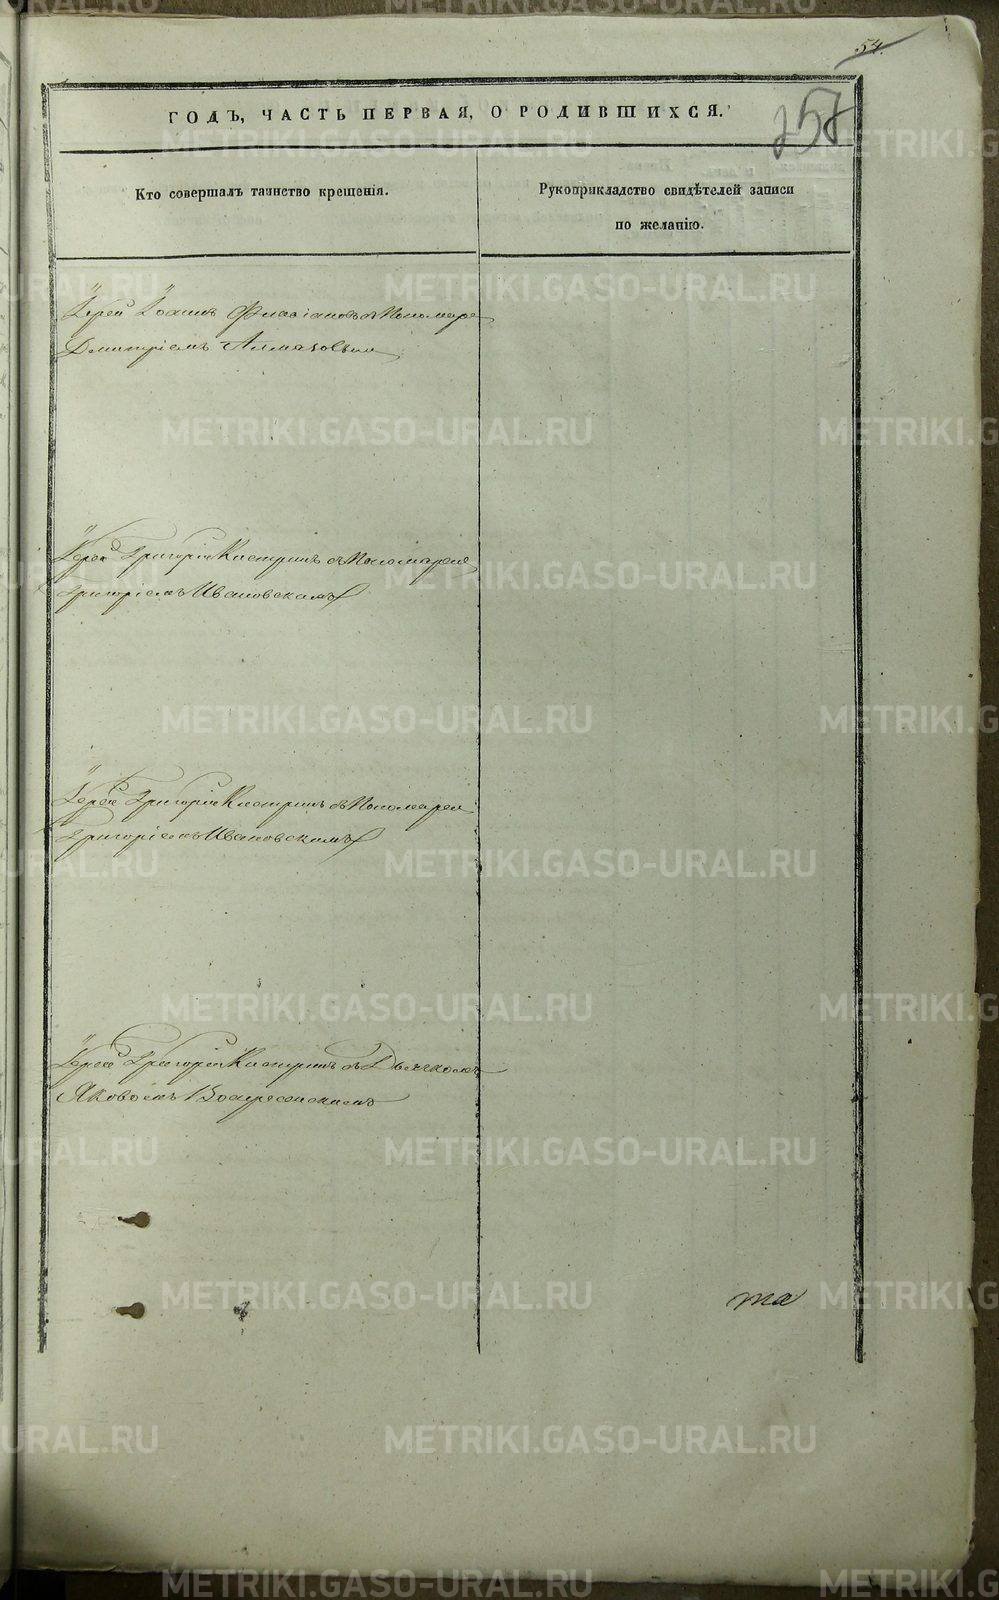 54.
257
ГОДЪ, ЧАСТЬ ПЕРВАЯ, О РОДИВШИХСЯ.
Кто совершалъ таинство крещенія.
Рукоприкладство свидѣтелей записи
по желанію.
Іерей Іоаннъ Флавіановъ съ Пономаре
Димитріемъ Алмазовым
Іерей Григорій Кастринъ съ Пономарем
Григоріемъ Ивановскимъ
Іерей Григорій Кастринъ съ Пономарем
Григоріемъ Ивановскимъ
Іерей Григорій Кастринъ съ Дьячкомъ
Яковомъ Воскресенскимъ
та
METRIKI.GASO-URAL.RU